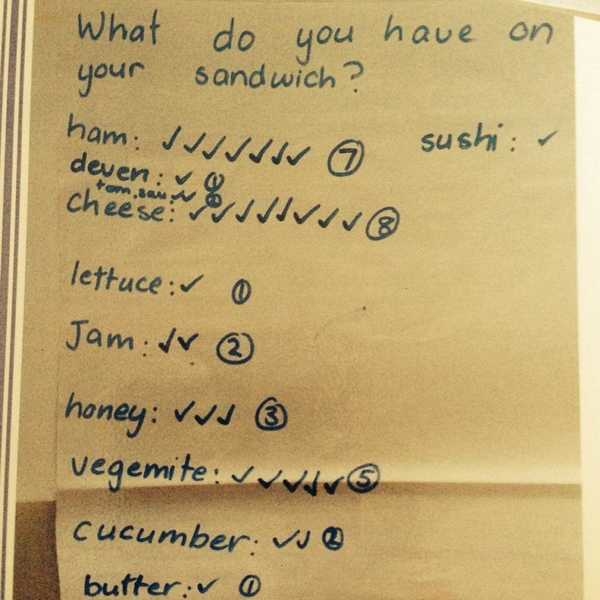 What do you have on
your sandwich?
ham: ✓✓✓✓✓✓✓ 7 sushi: ✓
deven: ✓ 1
tom.sau. ✓✓ 2
cheese: ✓✓✓✓✓✓✓✓ 8
lettuce: ✓ 1
Jam: ✓✓ 2
honey: ✓✓✓ 3
vegemite: ✓✓✓✓✓ 5
cucumber: ✓✓ 2
butter: ✓ 1